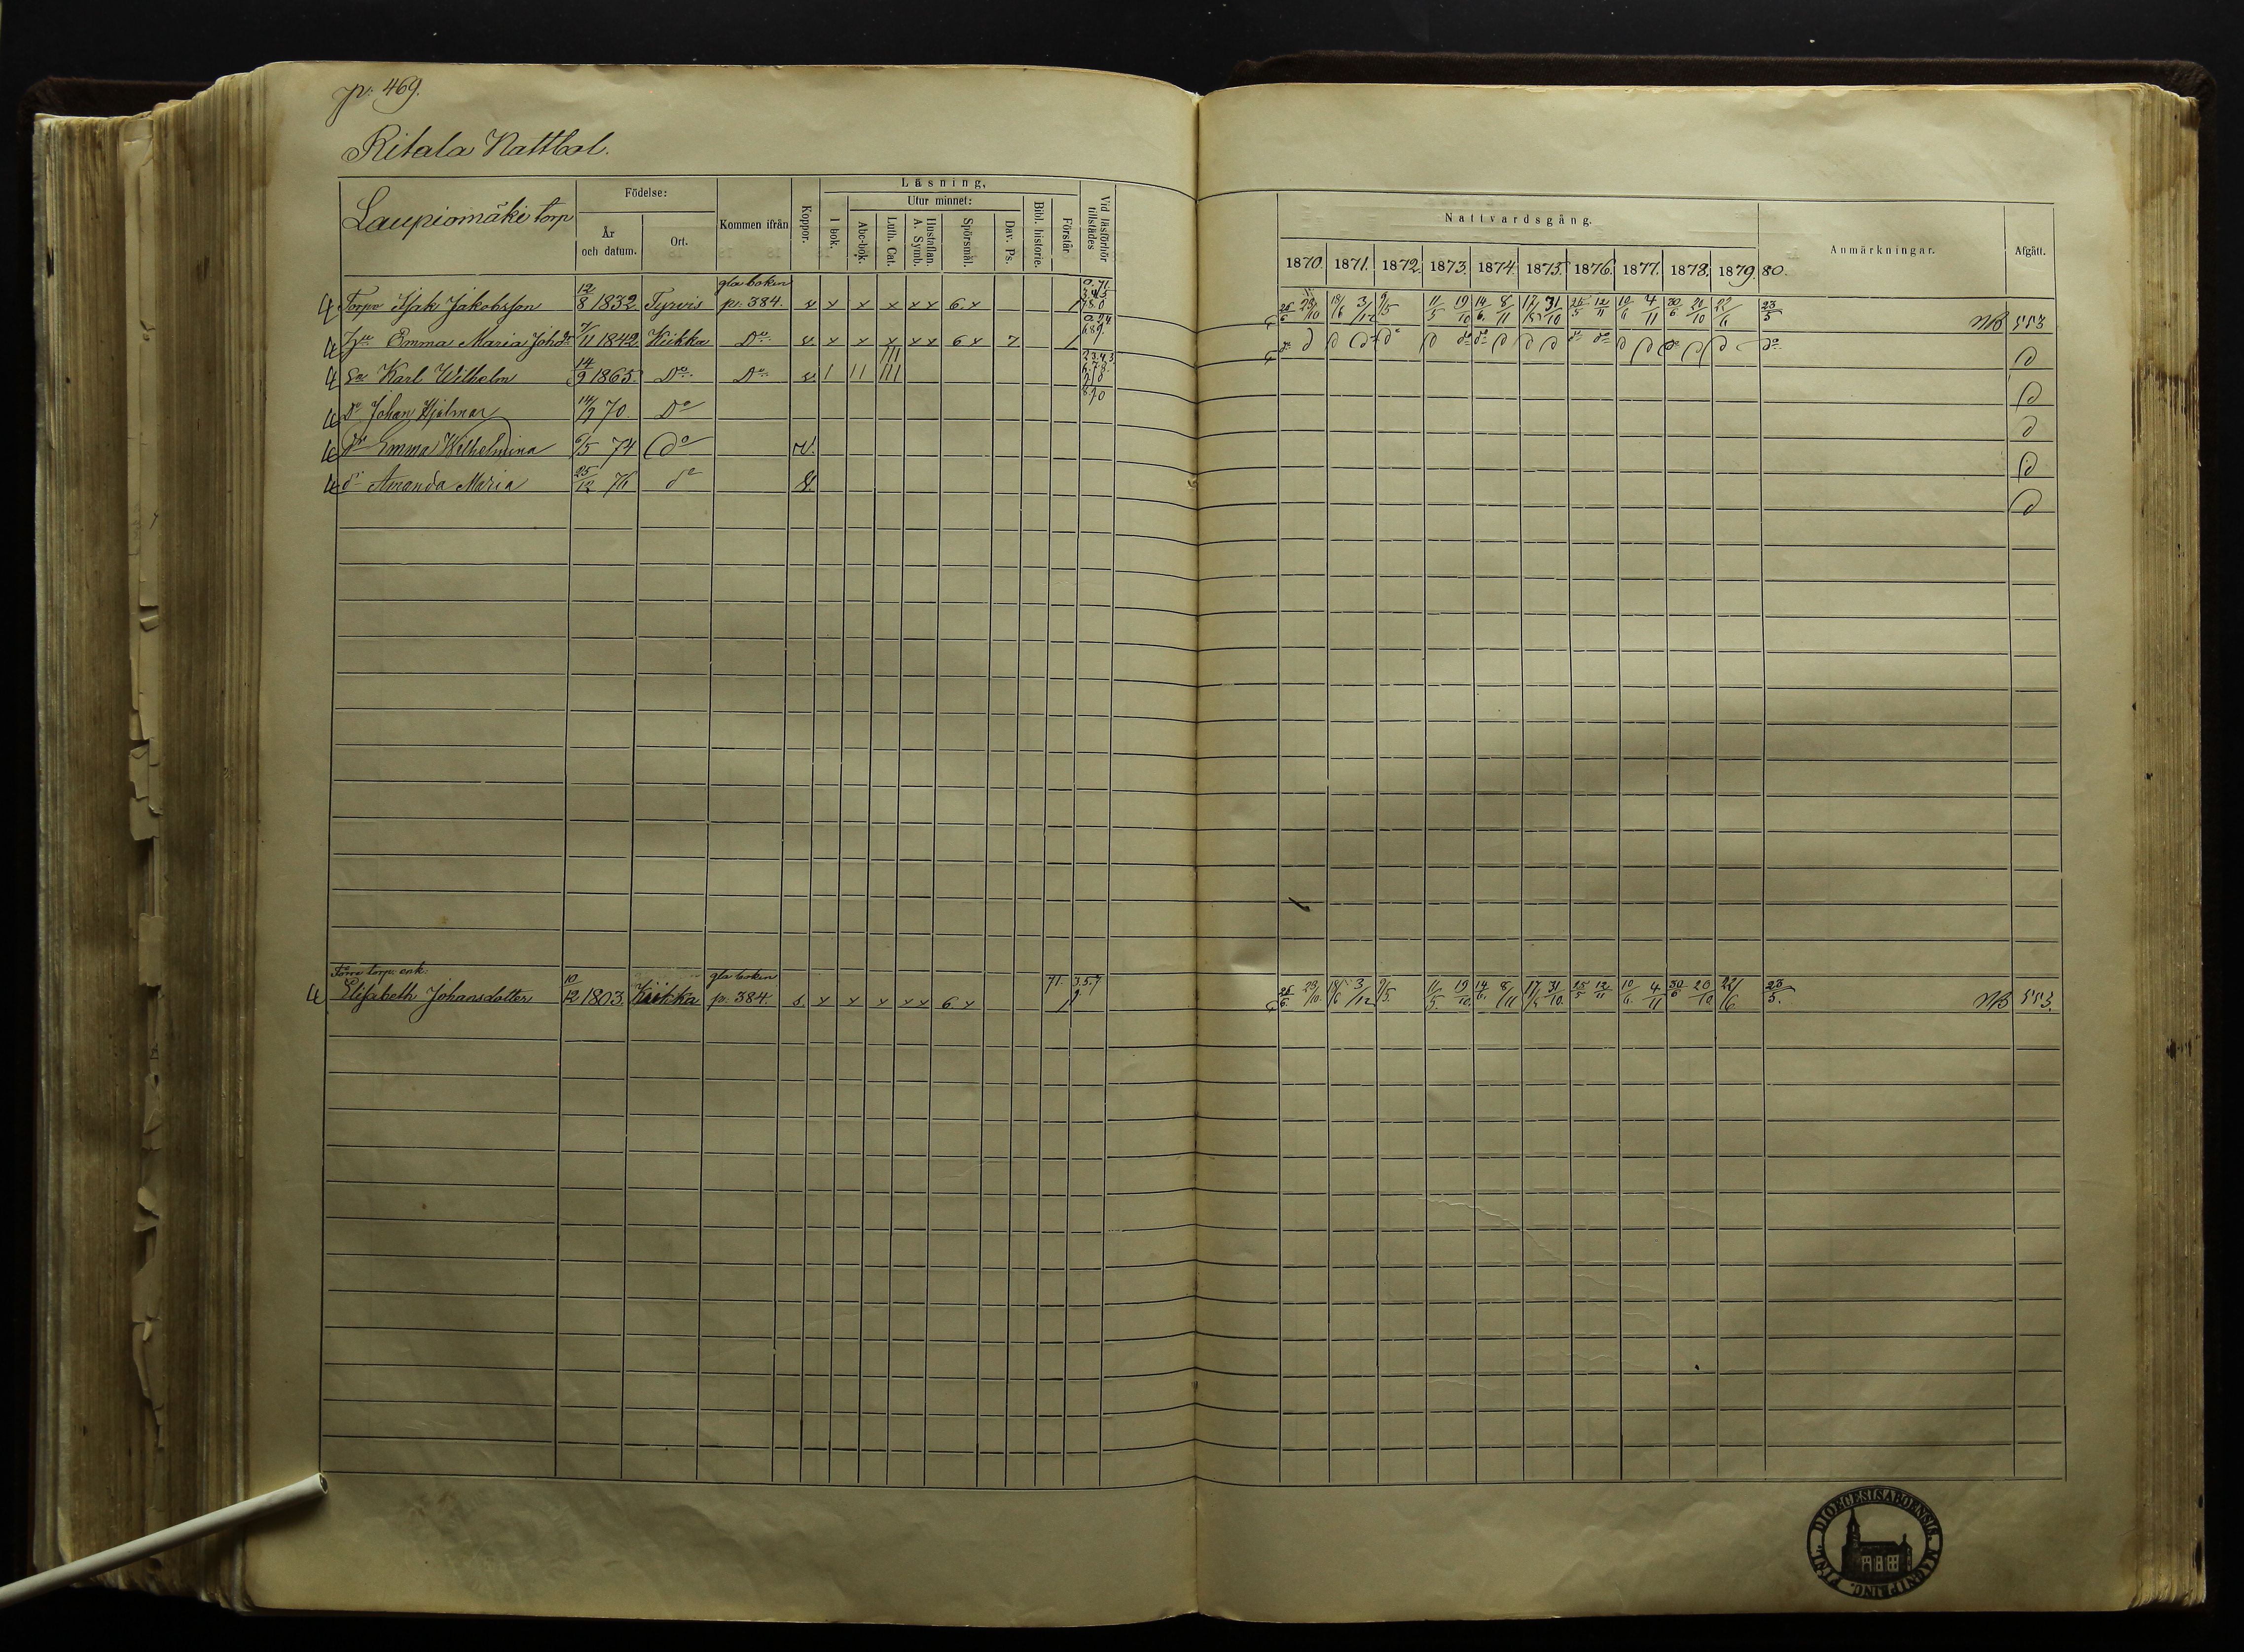 p: 469.
Ritala Nattbol.
Laupiomäki torp
Födelse:
År och datum.
Ort.
Kommen ifrån
Koppor.
Läsning,
I bok.
Utur minnet:
Abc-bok.
Luth. Cat.
Hustaflan. A. Symb.
Spörsmål.
Dav. Ps.
Bibl. historie.
Förstår
Vid läsförhör tillstädes
Nattvardsgång.
1870. 1871. 1872. 1873. 1874. 1875. 1876. 1877. 1878. 1879. 80.
Anmärkningar.
Afgått.
gla boken
Torp. Isak Jakobsson 12/8 1832 Tyrvis p. 384. v x x x x x 6. x 1 26/6 23/10 18/6 3/12 9/5 11/5 19/10 14/6 8/11 17/5 31/10 25/5 12/11 10/6 4/11 30/6 20/10 22/6 23/5 NB 553
Hu Emma Maria Johdr 7/11 1842 Kiikka Do v x x x x x 6 x 7 1 do
So Karl Wilhelm 14/9 1865. Do Do v. 1 11
Do Johan Hjalmar 14/9 70. Do
Dr Emma Wilhelmina 6/5 74 do v.
dr Amanda Maria 25/12 76 do v.
Förre torp. enk. gla boken
Elisabeth Johansdotter 10/12 1803. Kiikka p. 384. v. x x x x x 6. x 71. 3.5.7 1 26/6 23/10 18/6 3/12 9/5. 11/5. 19/10 14/6. 8/11 17/5 31/10. 25/5 12/11 10/6. 4/11 30/6 20/10 22/6. 23/5. NB 553.
DIOECESIS ABOENSIS. MAGNI PRINC. FINL.